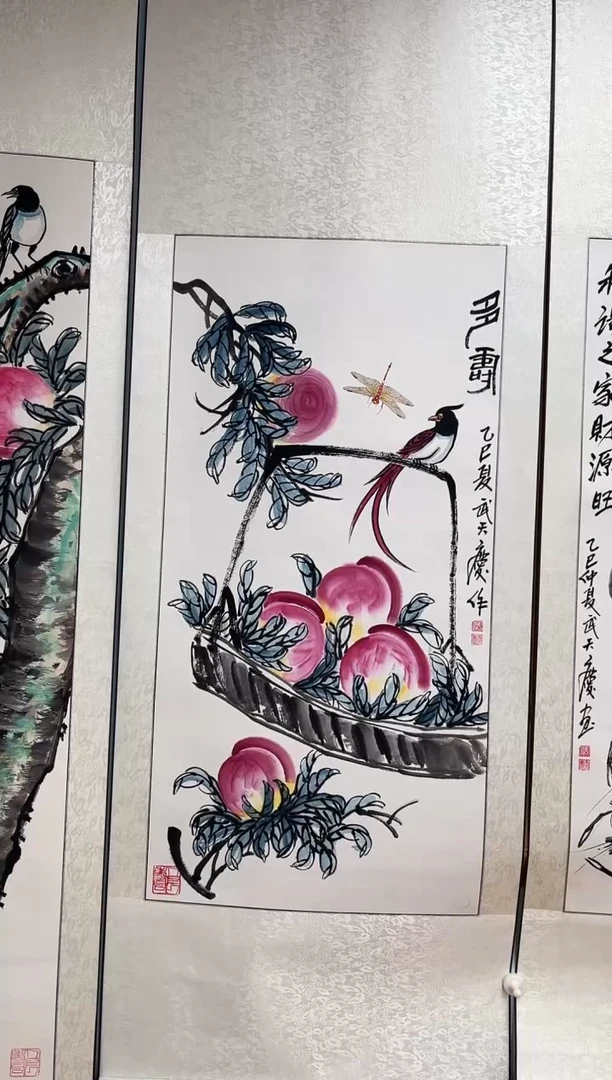 多寿
乙巳夏武天庆作
和谐之家财源旺
乙巳仲夏武天庆画